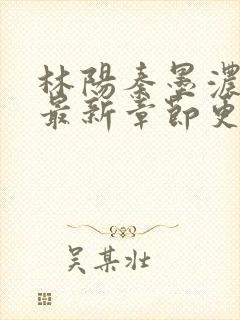 林陽秦墨濃
最新章節更
吴某壮